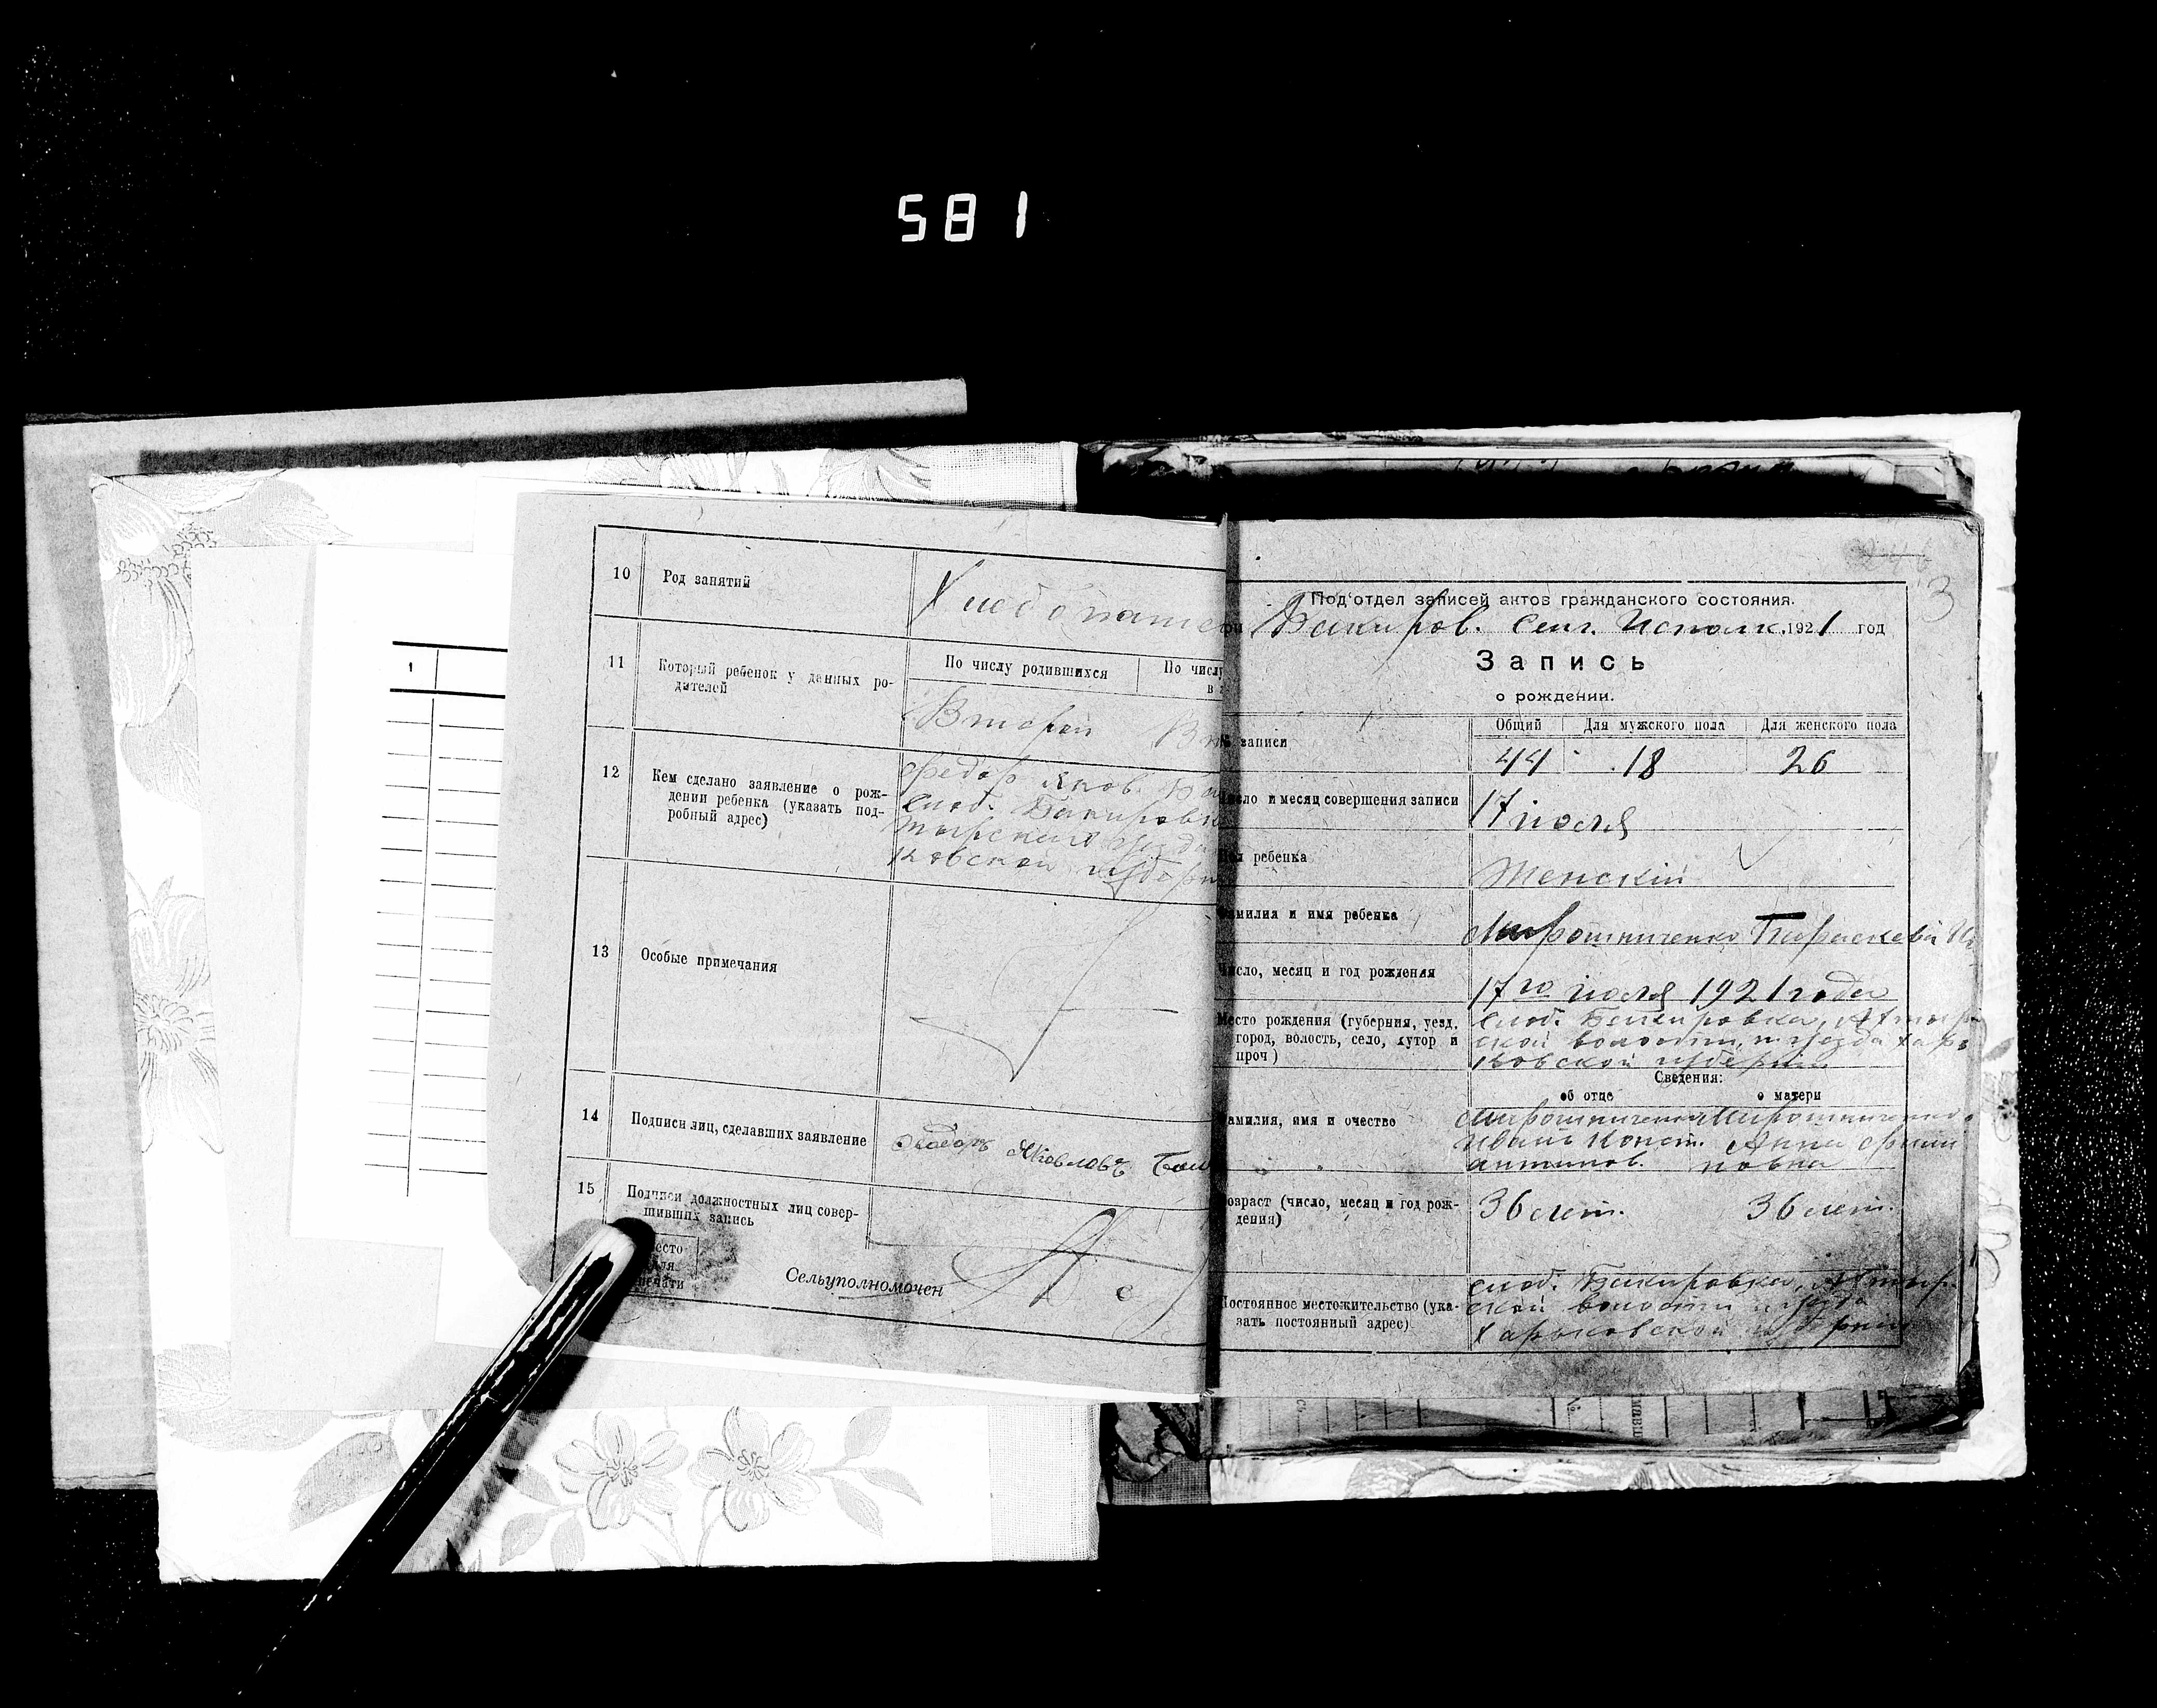 581
10 Род занятий
11 Который ребенок у данных ро-
дителей
По числу родившихся По числу
в
Второй
12 Кем сделано заявление о рож-
дении ребенка (указать под-
робный адрес)
Федор Яков.
слоб. Бакировк
тырского уезда
ковской губерн
13 Особые примечания
14 Подписи лиц, сделавших заявление
Яковловъ
15 Подписи должностных лиц совер-
шивших запись
есто
ля
печати
Сельуполномочен
1
3
Под'отдел записей актов гражданского состояния.
Бакиров. Сел. Исполк. 1921 год
Запись
о рождении.
Общий Для мужского пола Для женского пола
записи
44 18 26
исло и месяц совершения записи
17 июля
ребенка
Женскій
амилия и имя ребенка
Мирошниченко Параскева
число, месяц и год рождения
17го июля 1921 года
Место рождения (губерния, уезд,
город, волость, село, хутор и
проч)
слоб. Бакировка, Ахтыр
ской волости, и уезда Харь
ковской губерніи
Сведения:
об отце о матери
амилия, имя и очество
Мирошниченко Мирошниченко
Иванъ Конст. Анна
антинов. повна
озраст (число, месяц и год рож-
дения)
36 лет. 36 лет.
Постоянное местожительство (ука-
зать постоянный адрес)
слоб. Бакировка, Ахтыр
ской волости и уезда
Харьковской губерніи